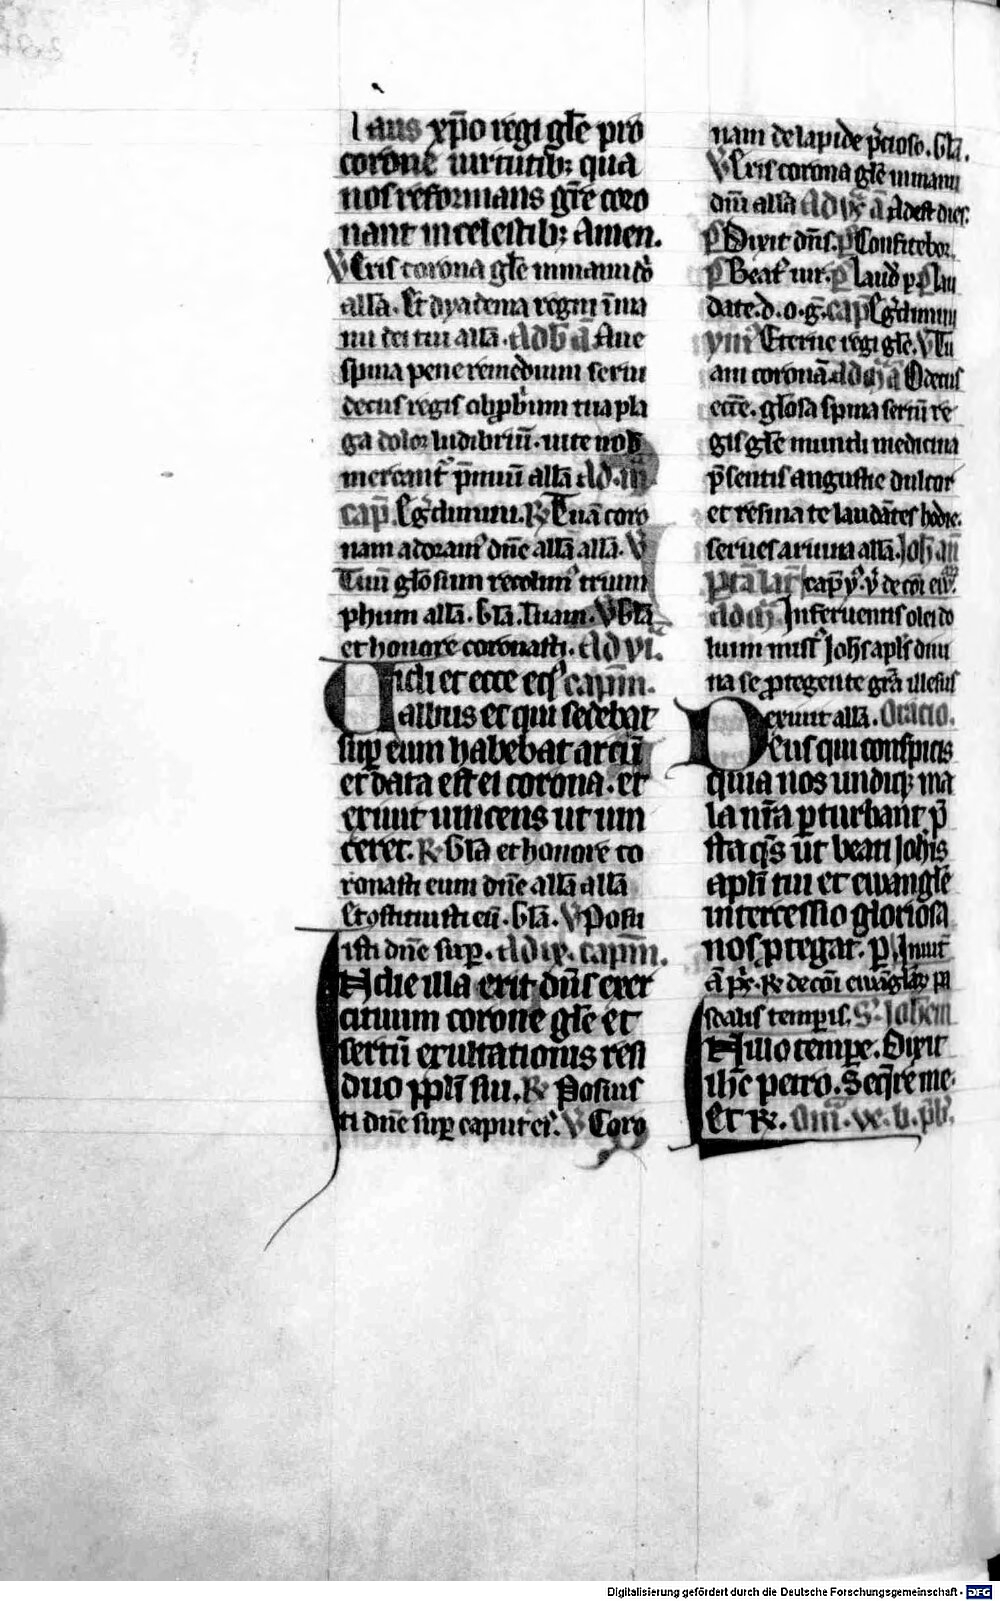 laus xp̄o regi gl̄e pro
corone uirtutib; qua
nos reformans gr̄e coro
nant in celestib; Amen.
V Eris corona gl̄e in manu dō
all̄a. Et dyadema regni ī ma
nu dei tui all̄a. Ad b̄ ā Aue
spina pene remedium sertū
decus regis obp̄brium tua pla
ga dolor ludibriū. uite nob̄
mereant᷑ p̄miū all̄a Ad .iii
cap̄. Egr̄dimini. R Tuā coro
nam adoram᷒ dn̄e all̄a all̄a. V
Tuū gl̄osum recolim᷒ trium
phum all̄a. Gl̄a. Tuam. V Gl̄a
et honore coronasti. Ad vi.
Uidi et ecce eq᷒s cap̄m.
albus et qui sedebat
sup eum habebat arcū
et data est ei corona. et
exiuit uincens ut uin
ceret. R Gl̄a et honore co
ronasti eum dn̄e all̄a all̄a
Et ostituisti eū. Gl̄a. V Posu
isti dn̄e sup. Ad ix. cap̄m.
In die illa erit dn̄s exer
cituum corone gl̄e et
sertū exultationis resi
duo ppl̄i sui. R Posuis
ti dn̄e sup caput ei᷒. V Coro
nam de lapide p̄cioso. Gl̄a.
V Eris corona gl̄e in manu
dn̄i all̄a Ad vr̄ ā Adest dies.
P Dixit dn̄s. P Confitebor.
P Beat᷒ uir. P Laud p. P Lau
date. d. o. g̅. cap̄ Egr̄dimini
ym᷒ Eterne regi gl̄e. V Tu
am coronā. Ad m̄ ā O decus
ecc̄e. gl̄osa spina sertū re
gis gl̄e mundi medicina
p̄sentis angustie dulcor
et resina te laudātes hodie.
serues a ruina all̄a. Ioh̄ an̄
Ad m̄ In feruentis olei do
lium miss᷒ Ioh̄s apl̄s diui
na se protegente gr̄a illesus
exiuit all̄a. Oracio.
Deus qui conspicis
quia nos undiq; ma
la nr̄a pturbant p̄
sta q̄s ut beati Ioh̄is
apl̄i tui et ewangl̄e
intercessio gloriosa
nos ptegat. p. Inuit̄
scalis temporis. S. Ioh̄em
In illo tempore. Dixit
ih̄c petro. Seq̄re me.
et R.